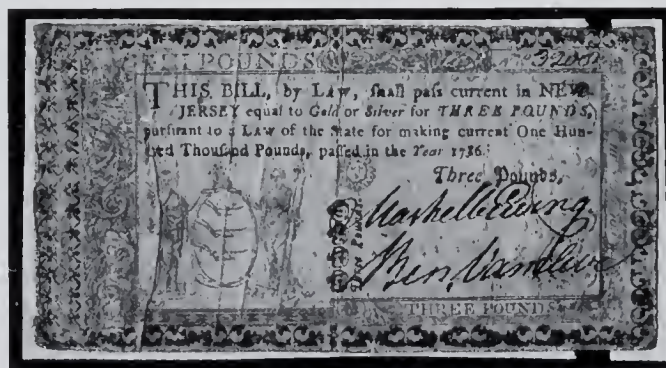 POUNDS
THIS BILL, by LAW, ſhall paſs current in NEW-
JERSEY equal to Gold or Silver for THREE POUNDS,
purſuant to a Law of the State for making current One Hun-
dred Thouſand Pounds, paſſed in the Year 1786.
Three Pounds.
Three Pounds.
Maskell Ewing
Ben Vancleve
THREE POUNDS